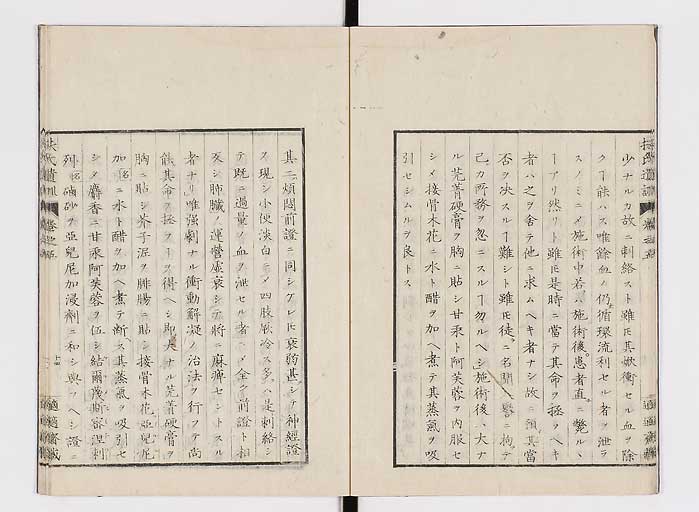 少ナルカ故ニ刺絡スト雖𪜈其焮衝セル血ヲ除
クヿ能ハス唯餘血ノ仍循環流利セル者ヲ泄ラ
スノミニメ施術中若ハ施術後患者直ニ斃ルヽ
ヿアリ然リト雖𪜈是時ニ當テ其命ヲ拯フヘキ
者ハ之ヲ舎テ他ニ求ムヘキ者ナシ故ニ預其當
否ヲ决スルヿ難シト雖𪜈徒ニ名聞ニ拘テ
己カ所務ヲ忽ニスルヿ勿ルヘシ施術後ハ大ナ
ル芫菁硬膏ヲ胸ニ貼シ甘汞ト阿芙蓉ヲ内服セ
シメ接骨木花ニ水ト醋ヲ加ヘ煮テ其蒸氣ヲ吸
引セシムルヲ良トス
其二煩悶前證ニ同シケレ𪜈衰弱甚シテ神經證
ヲ現シ小便淡白ニメ四肢厥冷ス多ハ是刺絡シ
テ既ニ過量ノ血ヲ泄セル者ニメ全ク前證ト相
反シ肺臓ノ運營虚衰シテ將ニ麻痺セントスル
者ナリ唯強劇ナル衝動解凝ノ治法ヲ行フテ尚
能其命ヲ拯フヿヲ得ヘシ即大ナル芫菁硬膏ヲ
胸ニ貼シ芥子泥ヲ腓腸ニ貼シ接骨木花亞兒尼
加ニ水ト醋ヲ加ヘ煮テ断ス其蒸氣ヲ吸引セ
シメ麝香ニ甘汞阿芙蓉ヲ伍シ結爾蔑斯密里刺
列硇砂ヲ亞兒尼加浸劑ニ和シ與フヘシ證ニ
扶氏遺訓
適適齋藏